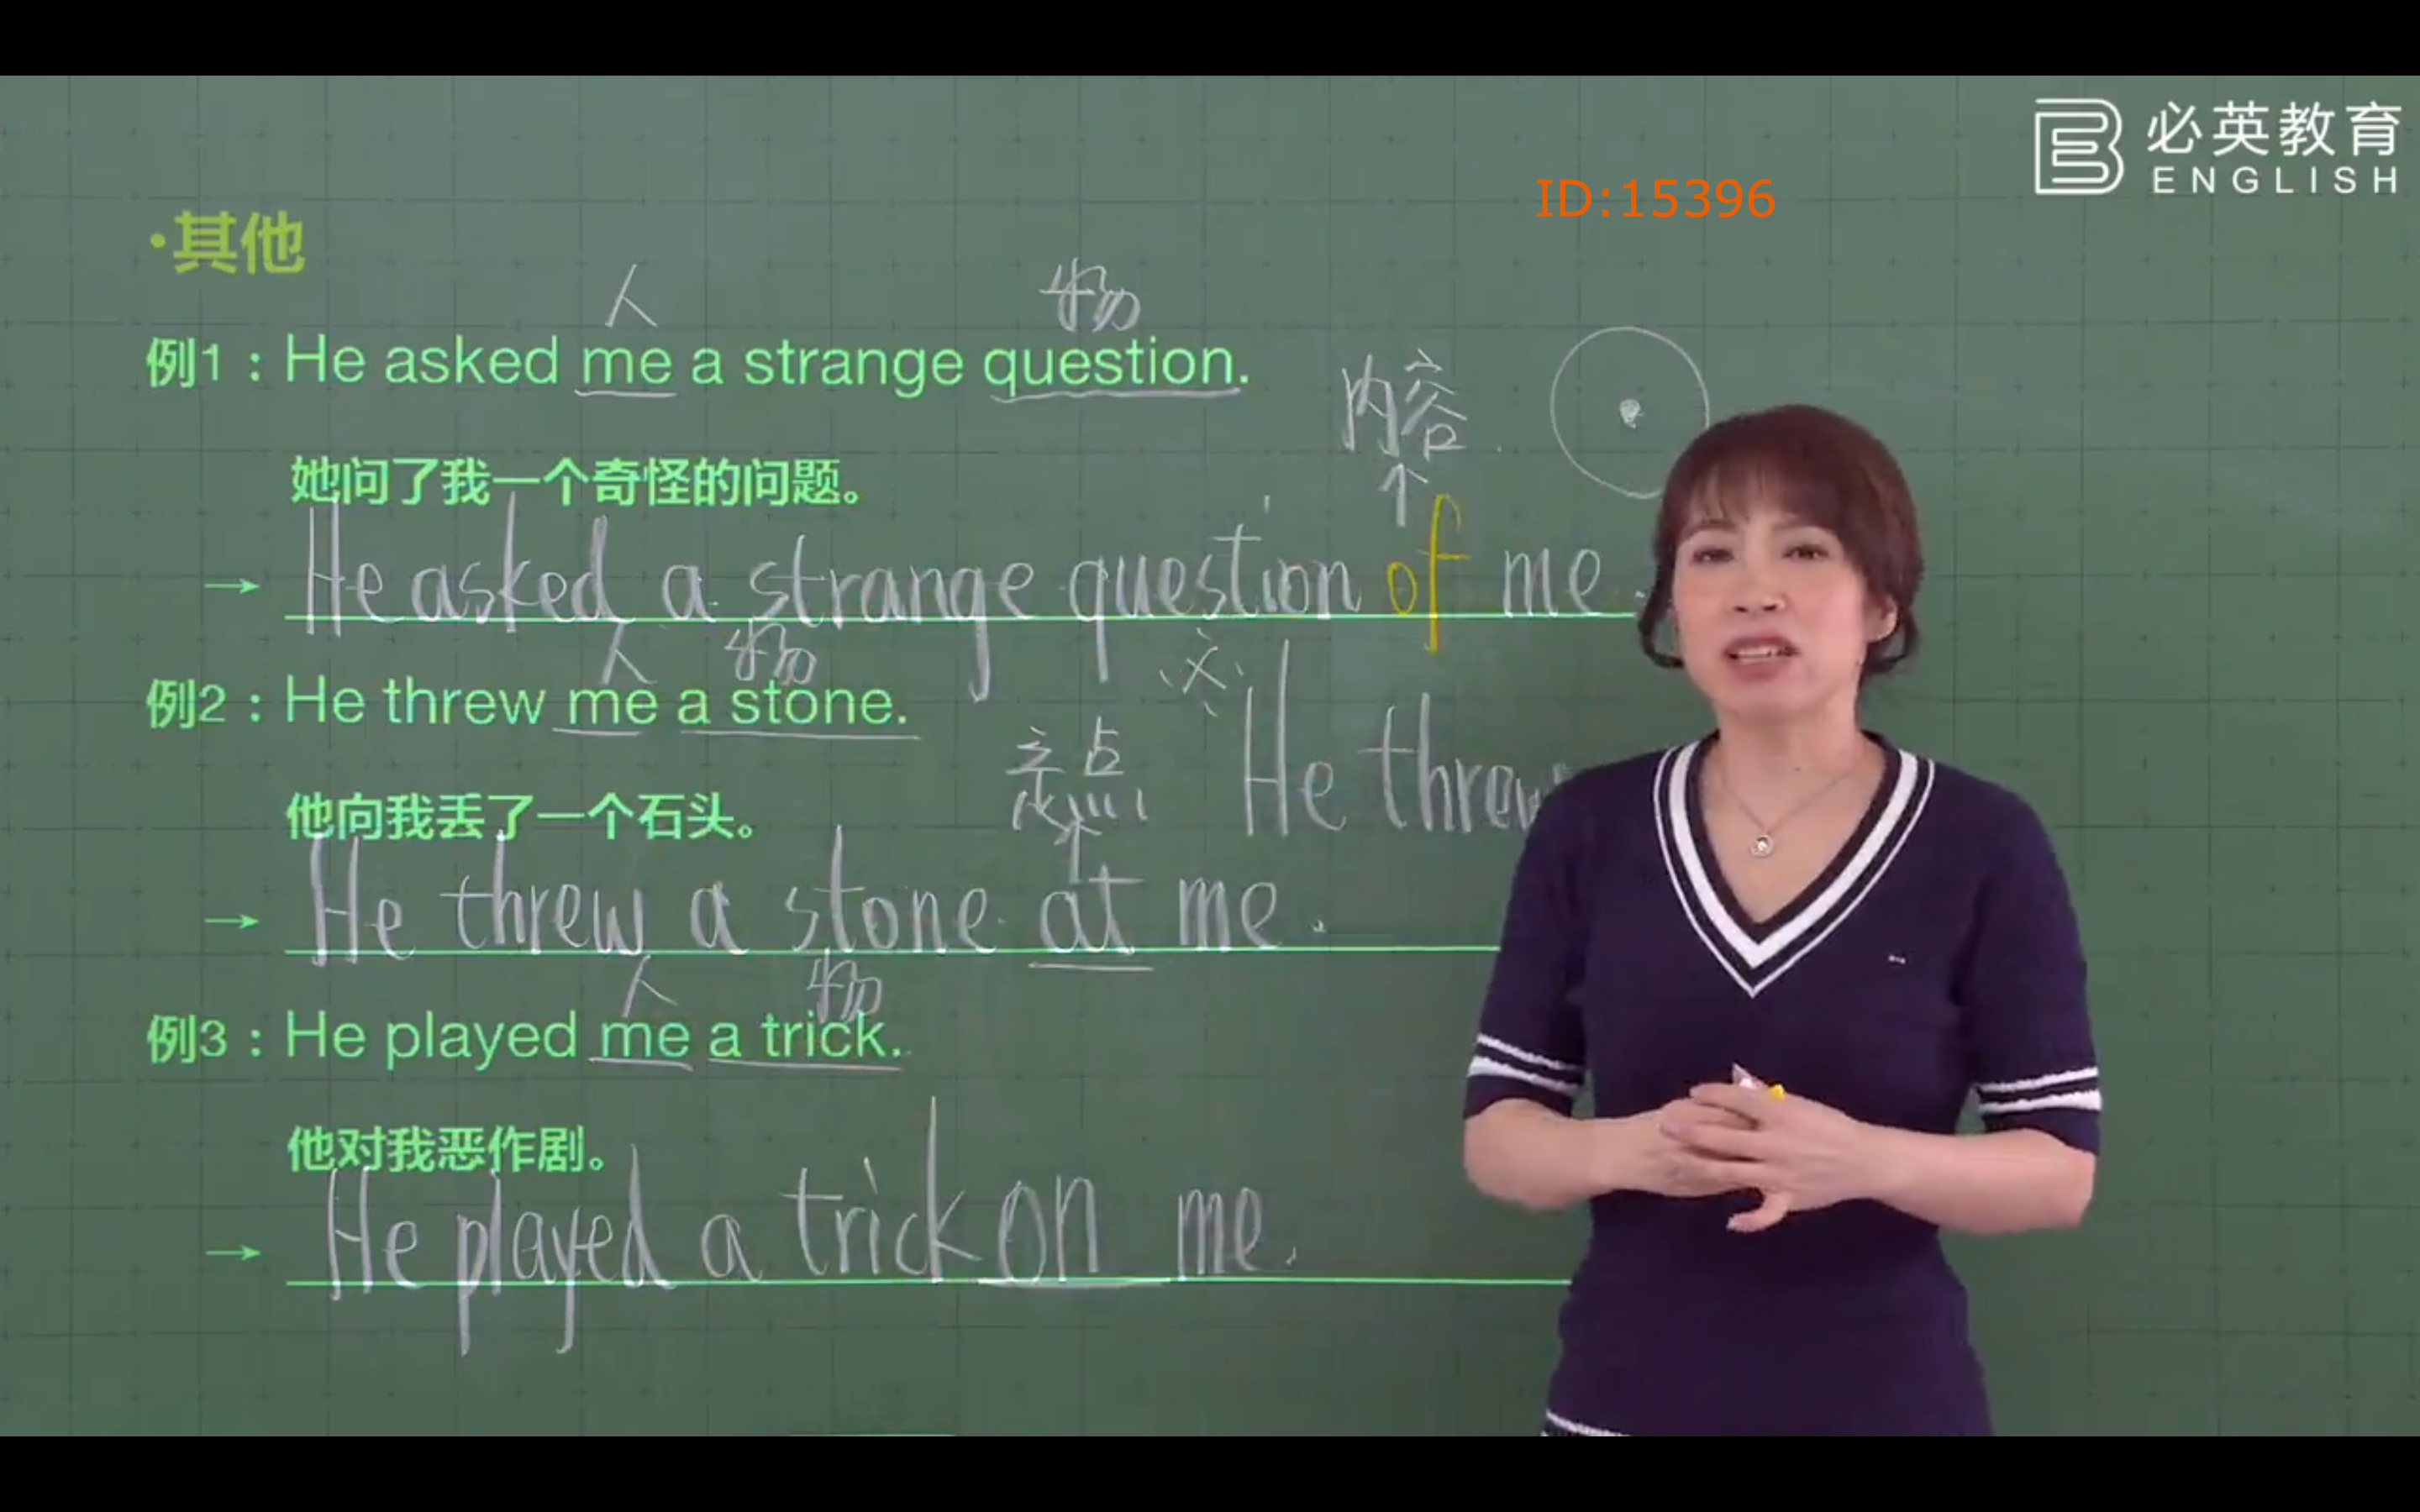 必英教育
ENGLISH
ID:15396
•其他
人 物
例1：He asked me a strange question.
内容
她问了我一个奇怪的问题。
→ He asked a strange question of me.
人 物
例2：He threw me a stone.
He threw
他向我丢了一个石头。
→ He threw a stone at me.
人 物
例3：He played me a trick.
他对我恶作剧。
→ He played a trick on me.